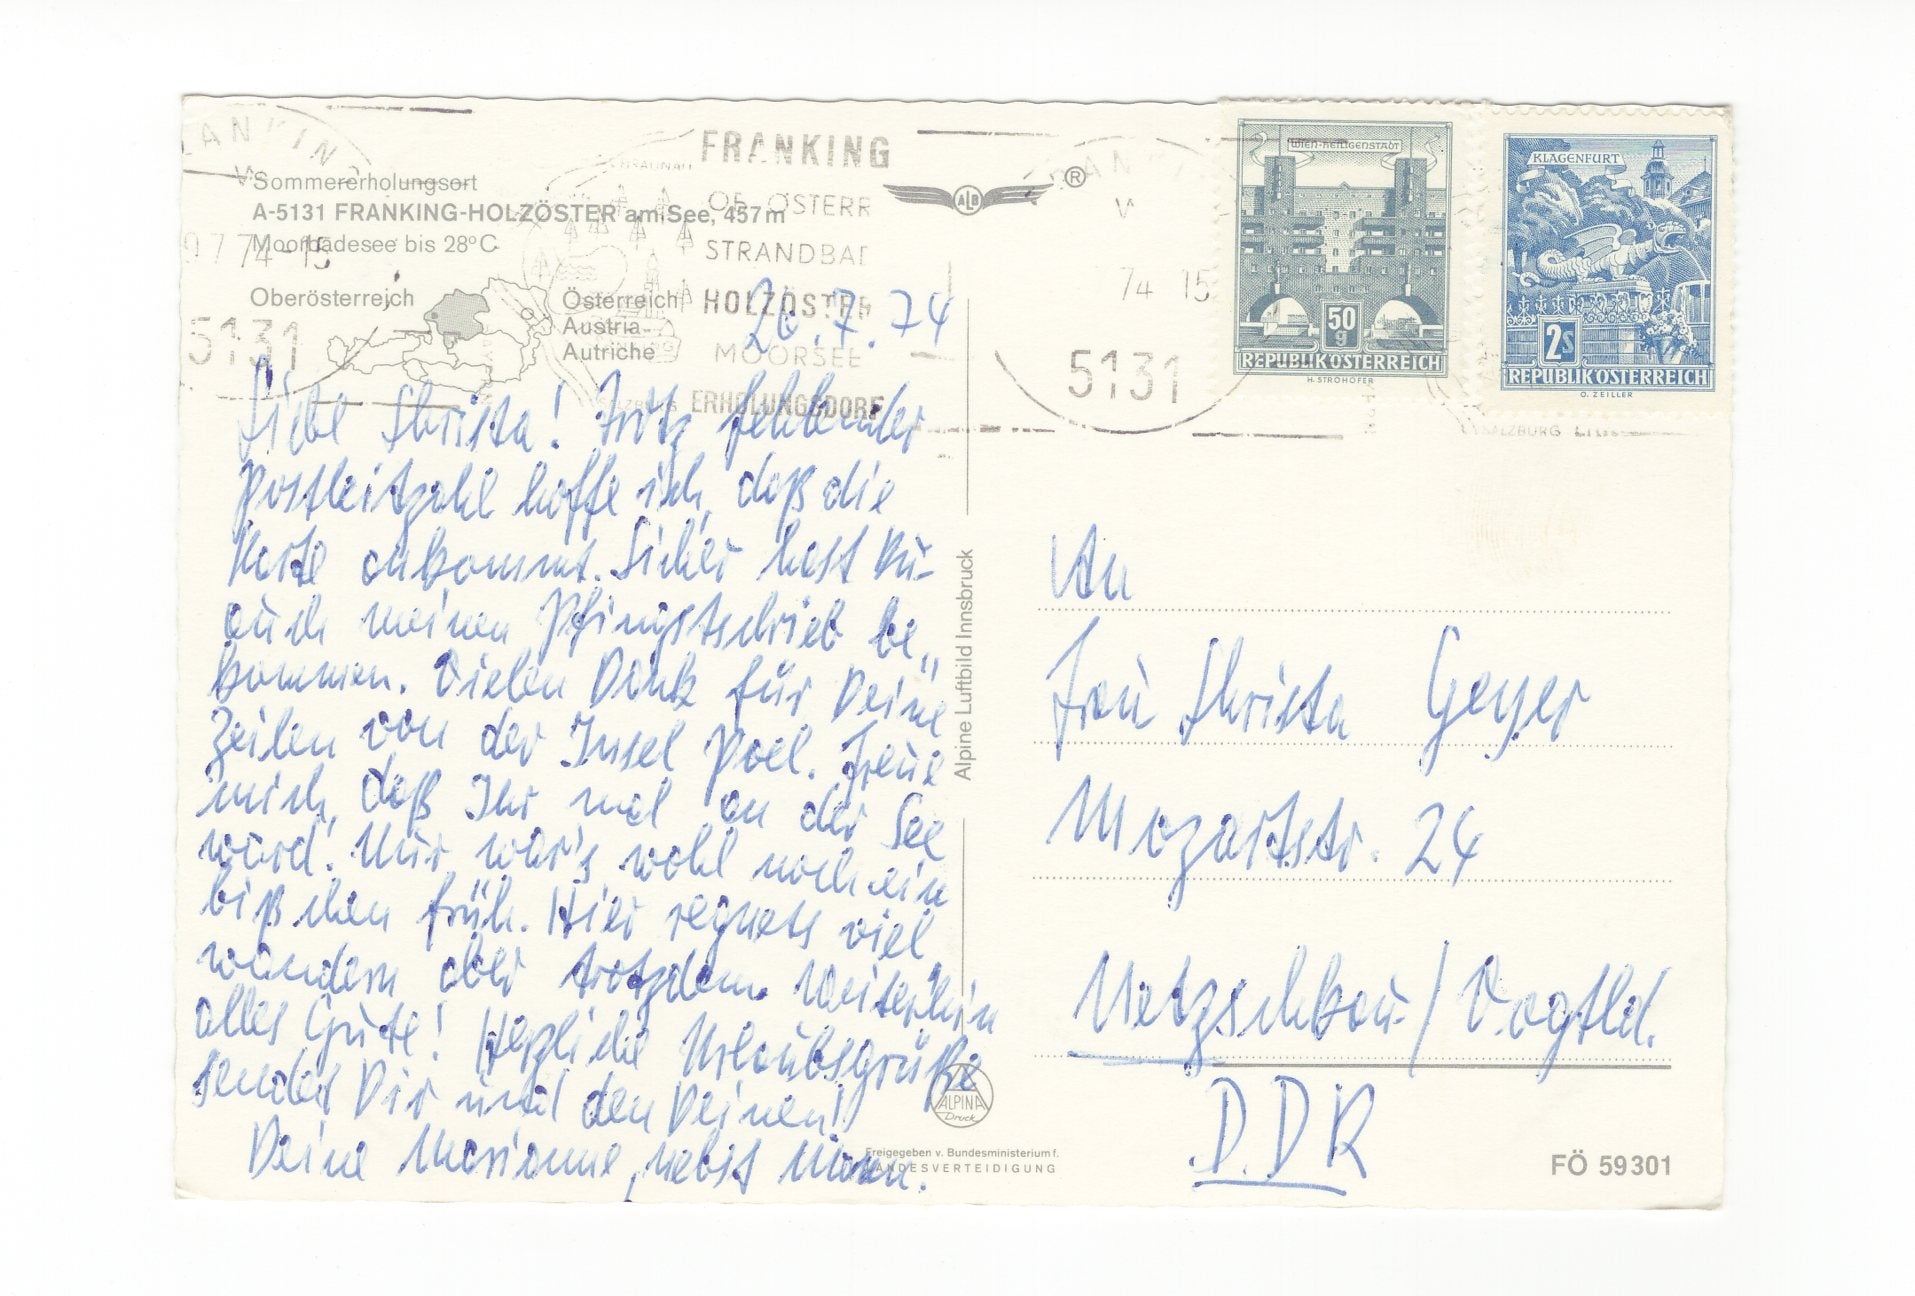 FRANKING
Sommererholungsort
A-5131 FRANKING-HOLZÖSTER am See, 457m
Moorbadesee bis 28°C
Oberösterreich
Österreich
Austria
Autriche
FRANKING
OB.ÖSTERR
STRANDBAD
HOLZÖSTER
MOORSEE
ERHOLUNGSDORF
5131
74-15
ALB ®
74 15
5131
WIEN-HEILIGENSTADT
50 g
REPUBLIK ÖSTERREICH
H. STROHOFER
KLAGENFURT
2S
REPUBLIK ÖSTERREICH
O. ZEILLER
SALZBURG
20.7.74
Liebe Christa! Trotz fehlender
Postleitzahl hoffe ich, daß die
Karte ankommt. Sicher hast Du
auch meinen Pfingstschrieb be„
kommen. Vielen Dank für Deine
Zeilen von der Insel Poel. Freue
mich, daß Ihr mal an der See
ward. Nur war's wohl noch ein
bißchen früh. Hier regnets viel
wandern aber trotzdem. Weiterhin
alles Gute! Herzliche Urlaubsgrüße
sendet Dir und den Deinen
Deine Marianne, nebst Mann.
Alpine Luftbild Innsbruck
An
Frau Christa Geyer
Mozartstr. 24
Netzschkau / Vogtld.
DDR
ALPINA
Druck
Freigegeben v. Bundesministerium f.
LANDESVERTEIDIGUNG
FÖ 59301